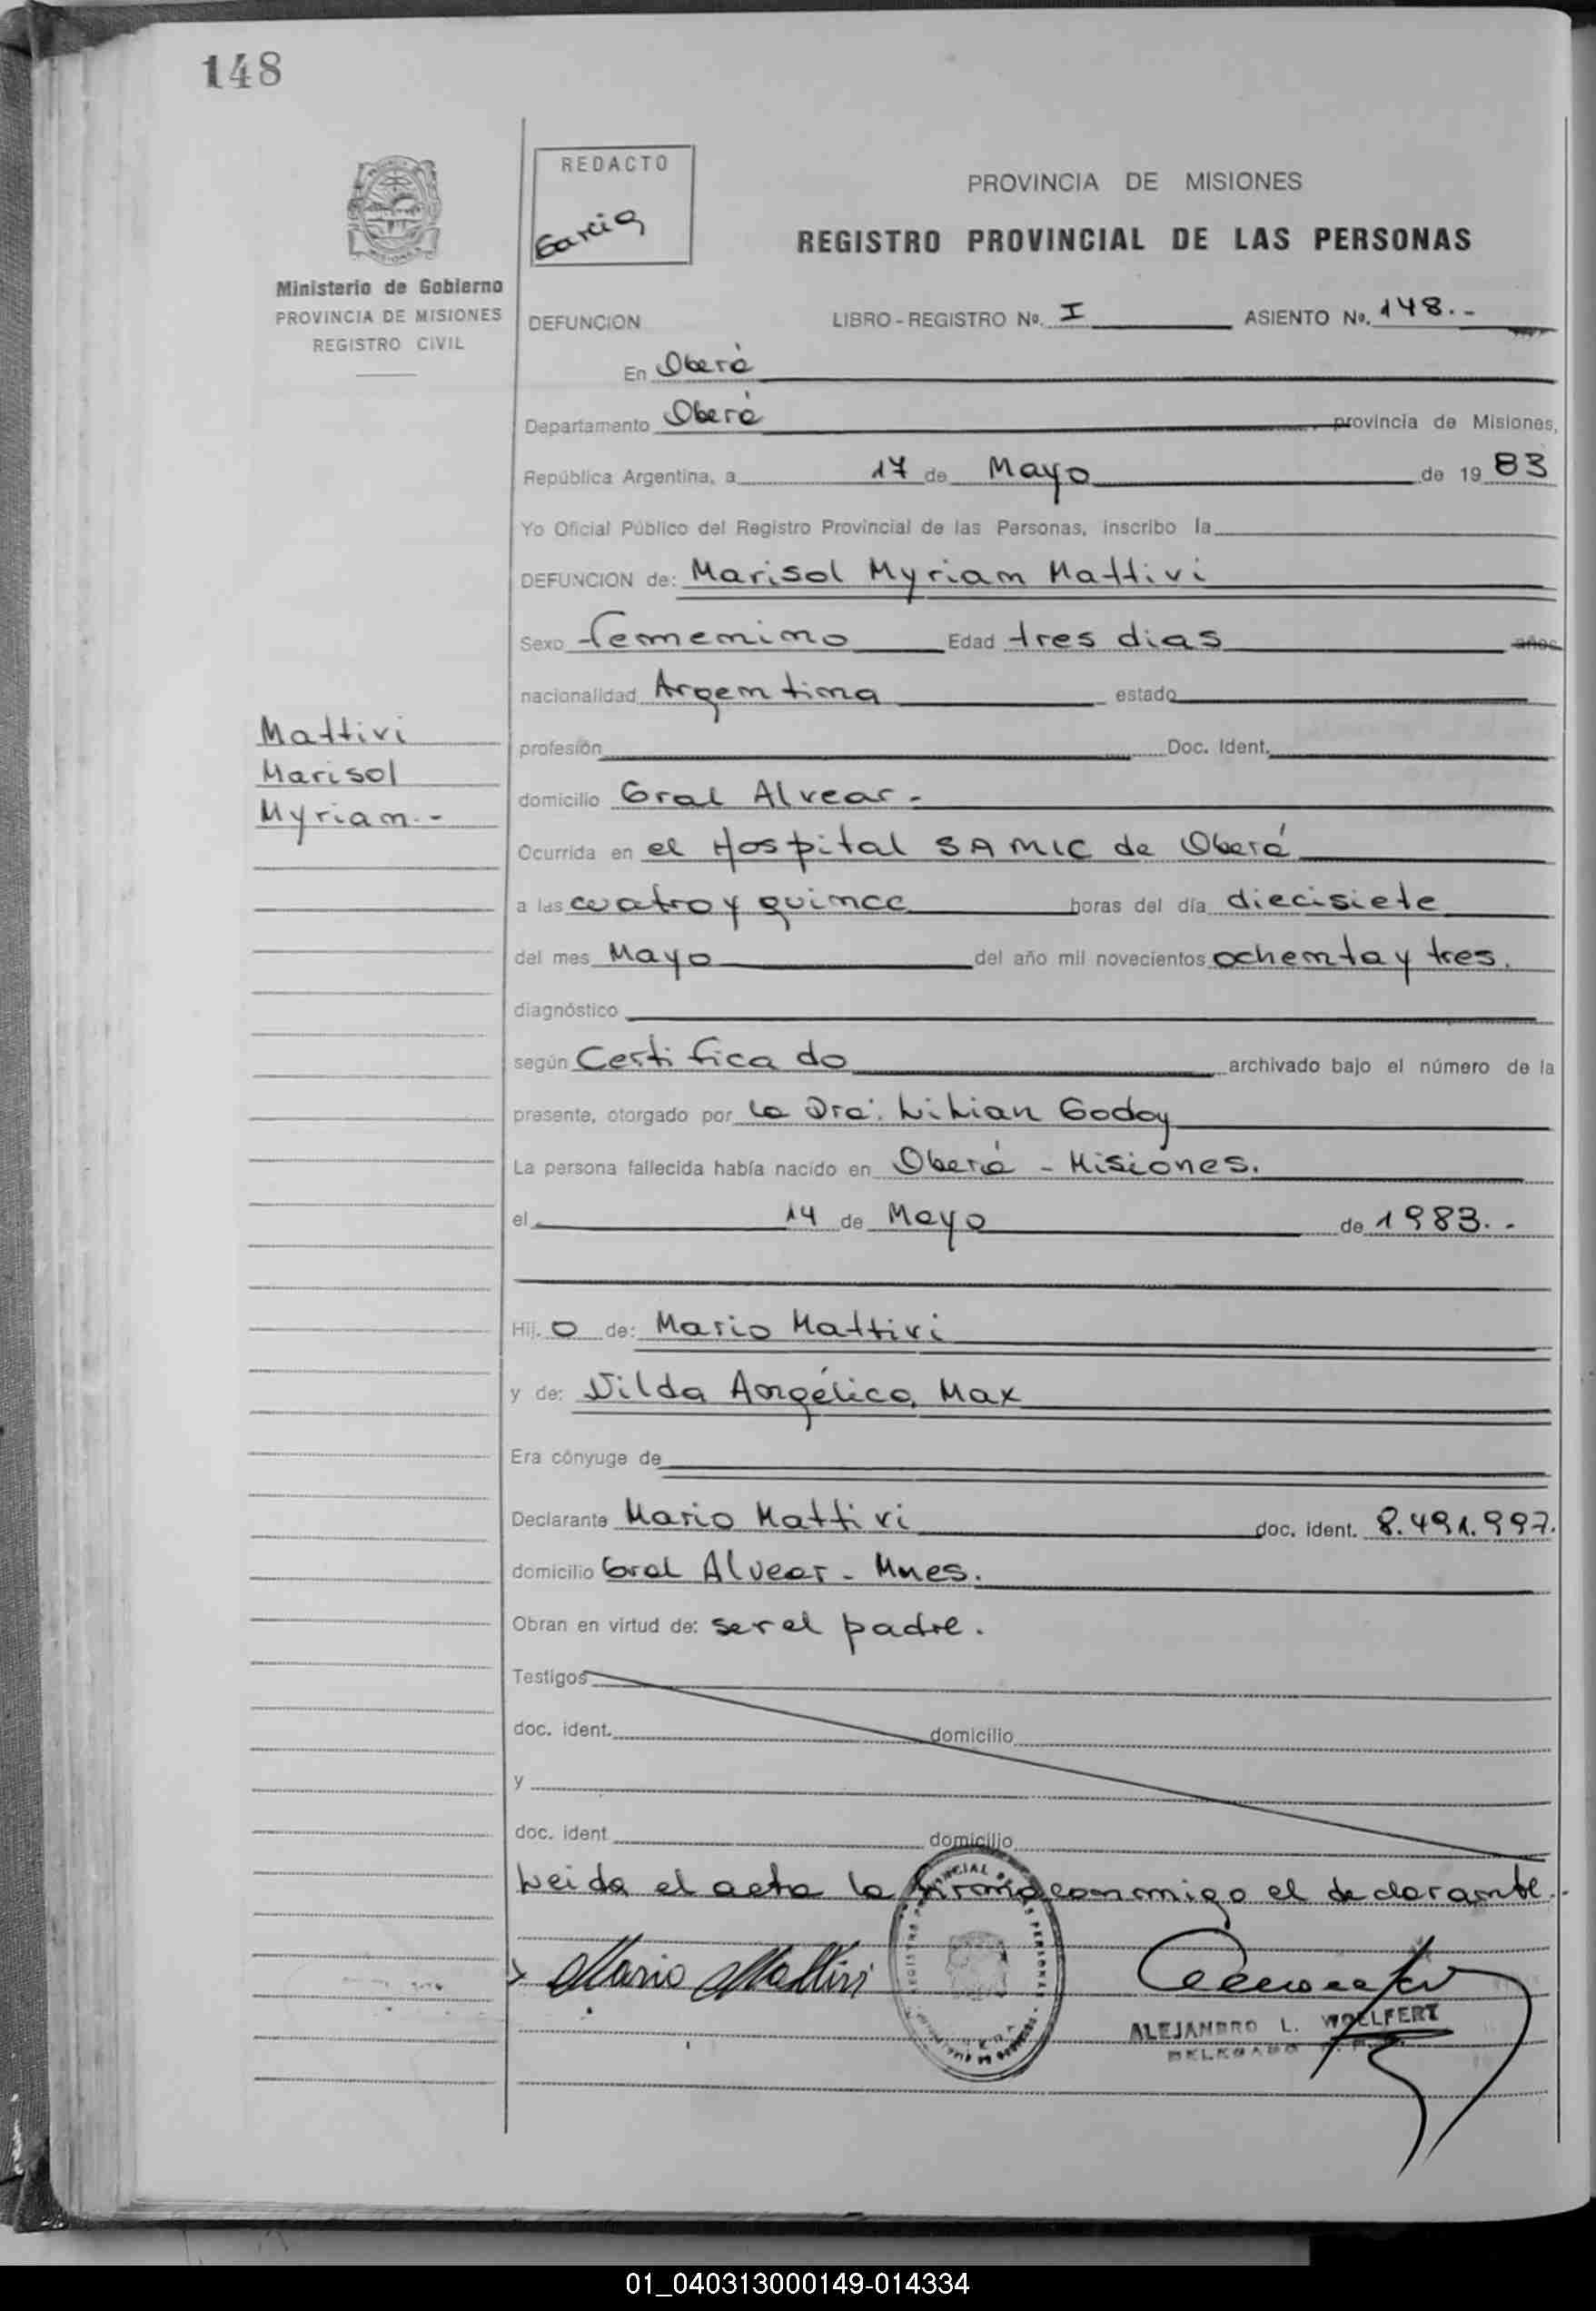 148
REDACTO
Garcia
PROVINCIA DE MISIONES
REGISTRO PROVINCIAL DE LAS PERSONAS
Ministerio de Gobierno
PROVINCIA DE MISIONES
REGISTRO CIVIL
DEFUNCION LIBRO-REGISTRO No. I ASIENTO No. 148.-
En Oberá
Departamento Oberá, provincia de Misiones,
República Argentina, a 17 de Mayo de 19 83
Yo Oficial Público del Registro Provincial de las Personas, inscribo la
DEFUNCION de: Marisol Myriam Mattivi
Sexo femenino Edad tres dias años
nacionalidad Argentina estado
Mattivi
Marisol
Myriam.-
profesión Doc. Ident.
domicilio Gral Alvear-
Ocurrida en el Hospital SAMIC de Oberá
a las cuatro y quince horas del día diecisiete
del mes Mayo del año mil novecientos ochenta y tres.
diagnóstico
según Certificado archivado bajo el número de la
presente, otorgado por la Dra. Lilian Godoy
La persona fallecida había nacido en Oberá - Misiones.
el 14 de Mayo de 1983.-
Hij. o de: Mario Mattivi
y de: Nilda Angélica Max
Era cónyuge de
Declarante Mario Mattivi doc. ident. 8.491.997.
domicilio Gral Alvear - Mnes.
Obran en virtud de: ser el padre.
Testigos
doc. ident. domicilio
y
doc. ident domicilio
Leida el acta la firma conmigo el declarante.-
Mario Mattivi
ALEJANDRO L. WOLFERT
DELEGADO
01_040313000149-014334